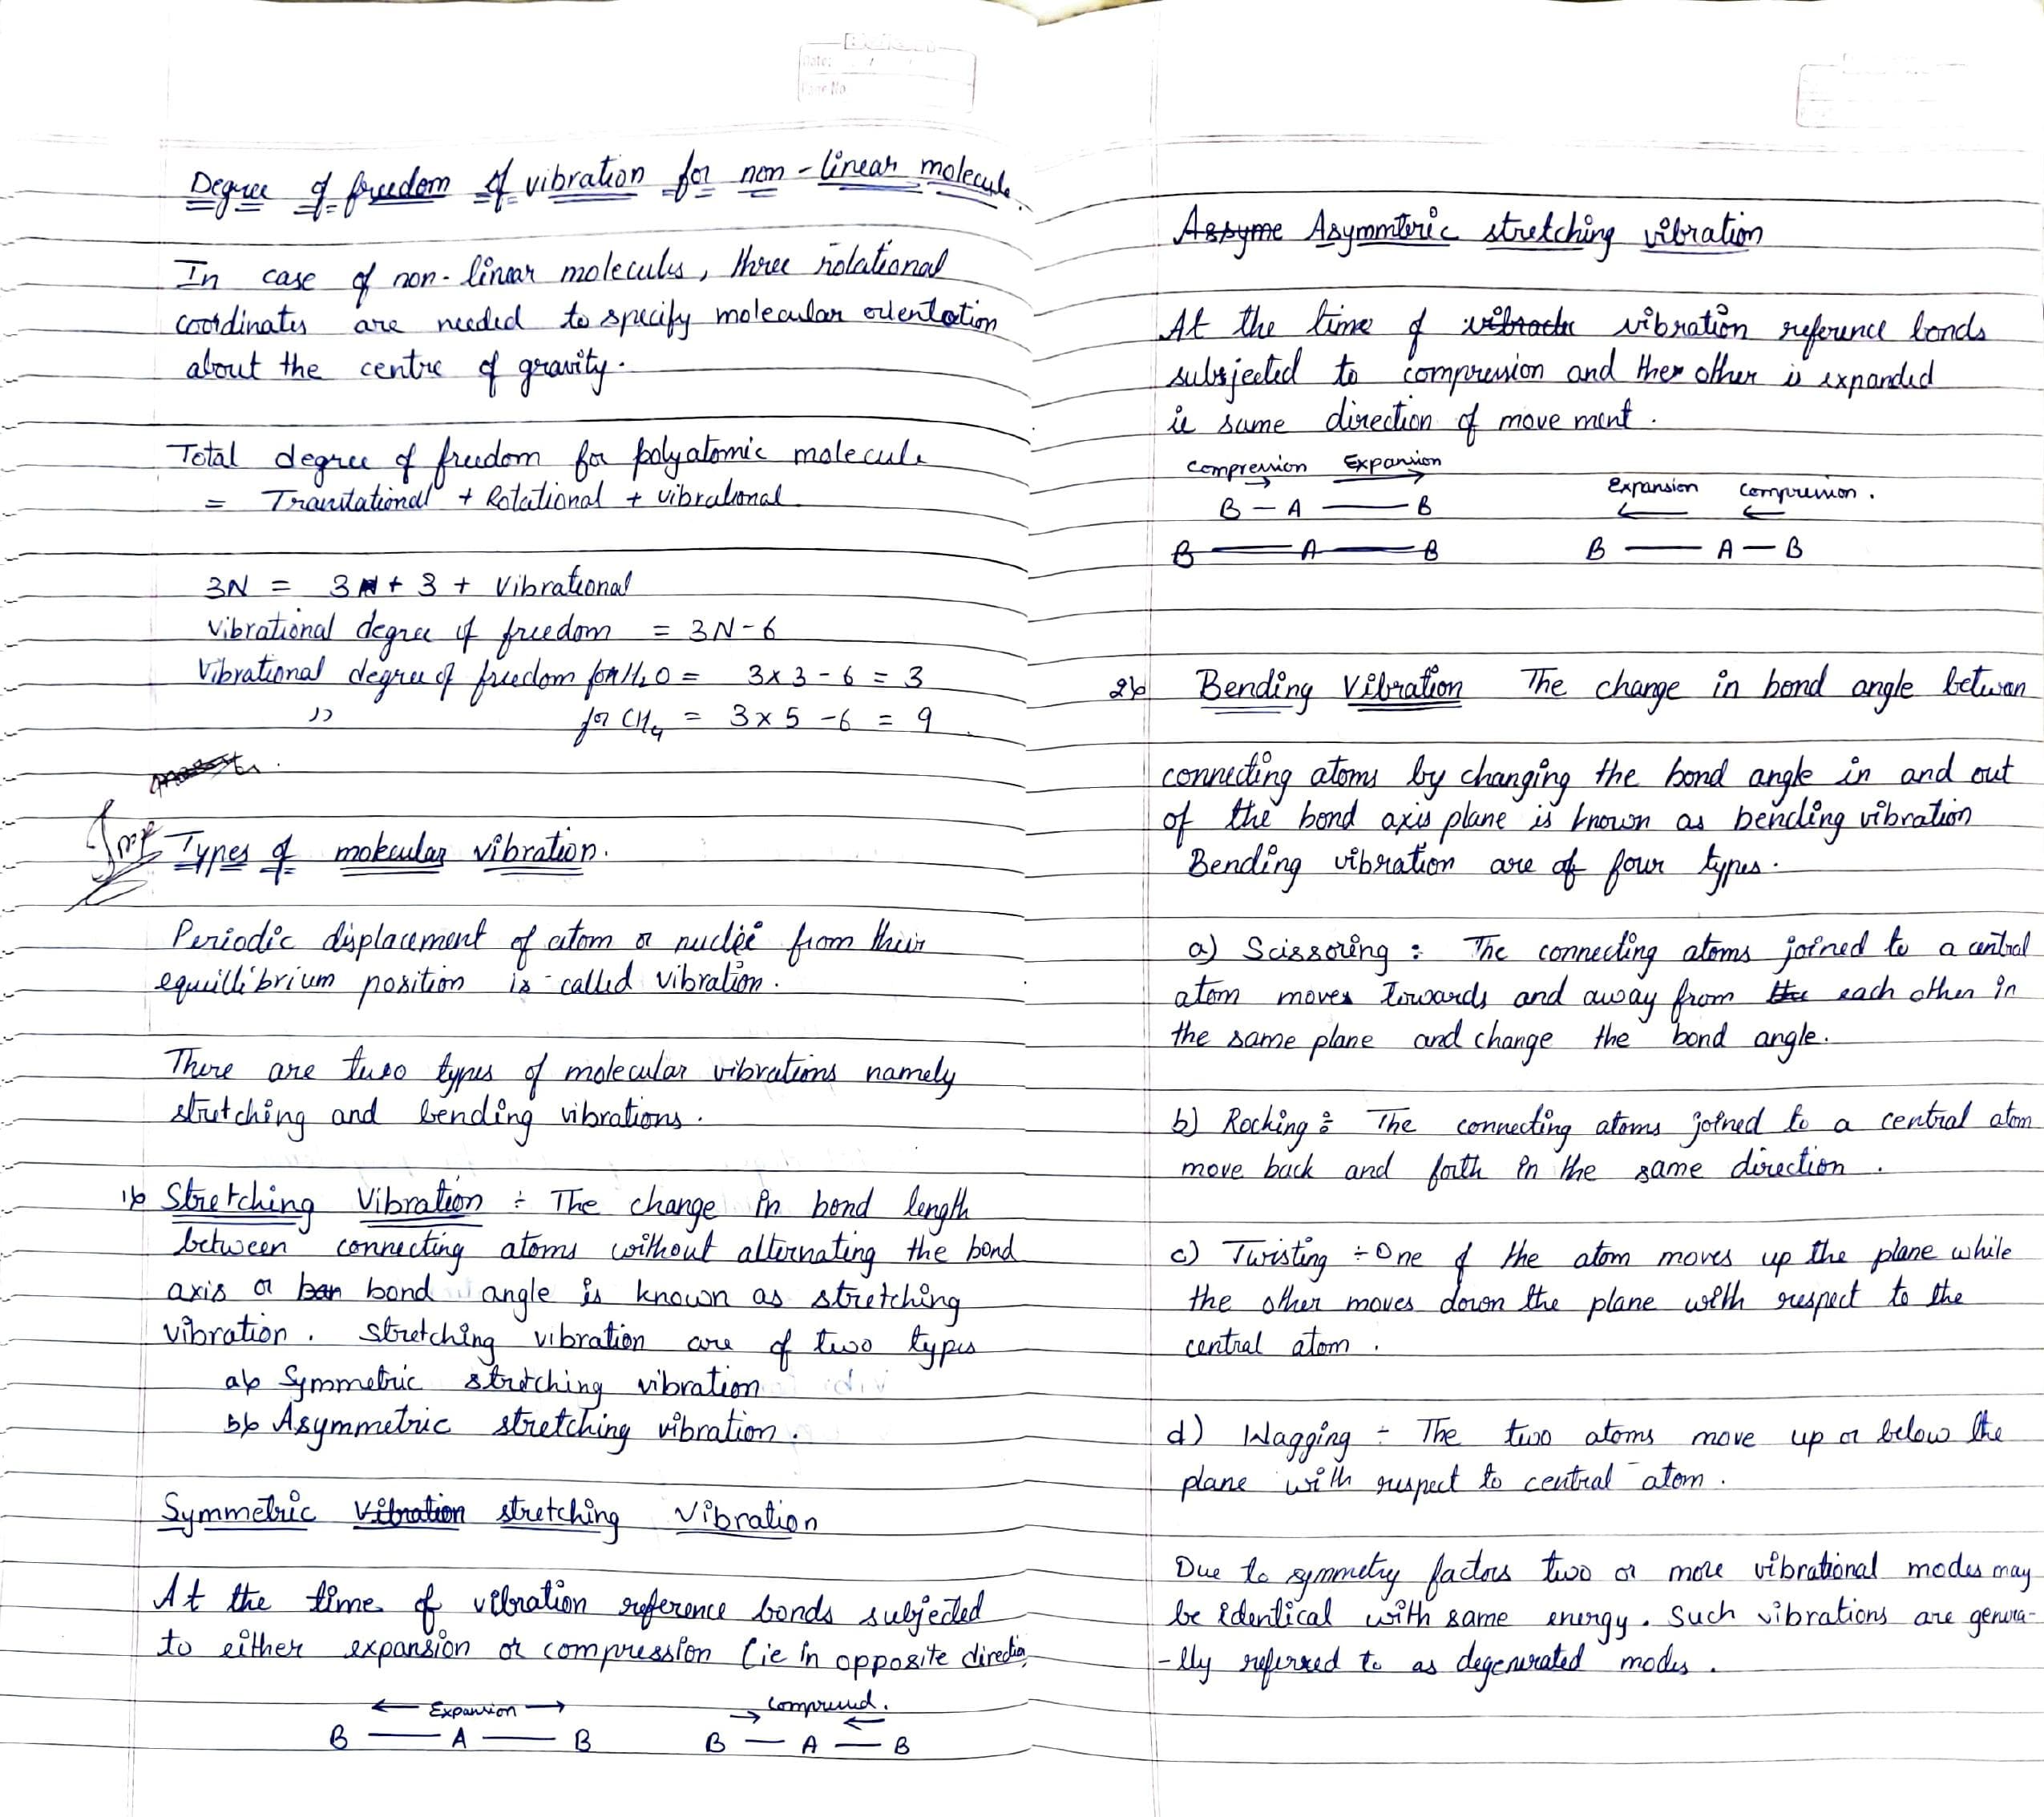 Date:
Page No
Degree of freedom of vibration for non-linear molecule.
In case of non-linear molecules, three rotational
coordinates are needed to specify molecular orientation
about the centre of gravity.
Total degree of freedom for polyatomic molecule
= Translational + Rotational + vibrational
3N = 3 + 3 + Vibrational
Vibrational degree of freedom = 3N-6
Vibrational degree of freedom for H2O = 3x3-6 = 3
" for CH4 = 3x5-6 = 9
Imp Types of molecular vibration.
Periodic displacement of atom or nuclei from their
equillibrium position is called vibration.
There are two types of molecular vibrations namely
stretching and bending vibrations.
1) Stretching Vibration : The change in bond length
between connecting atoms without alternating the bond
axis or ban bond angle is known as stretching
vibration. Stretching vibration are of two types
a) Symmetric stretching vibration
b) Asymmetric stretching vibration.
Symmetric Vibration stretching Vibration
At the time of vibration reference bonds subjected
to either expansion or compression (ie in opposite directio
← Expansion → → Compressed. ←
B — A — B B — A — B
Assyme Asymmteric stretching vibration
At the time of vibrate vibration reference bonds
subsjected to compression and ther other is expanded
ie same direction of movement.
Compression Expansion
→ →
B - A — B
Expansion Compression.
← ←
B — A — B B — A — B
2) Bending Vibration The change in bond angle between
connecting atoms by changing the bond angle in and out
of the bond axis plane is known as bending vibration
Bending vibration are of four types.
a) Scissoring : The connecting atoms joined to a central
atom moves towards and away from the each other in
the same plane and change the bond angle.
b) Rocking : The connecting atoms joined to a central atom
move back and forth in the same direction.
c) Twisting ÷ One of the atom moves up the plane while
the other moves down the plane with respect to the
central atom.
d) Wagging ÷ The two atoms move up or below the
plane with respect to central atom.
Due to symmetry factors two or more vibrational modes may
be identical with same energy. Such vibrations are genera-
-lly referred to as degenerated modes.